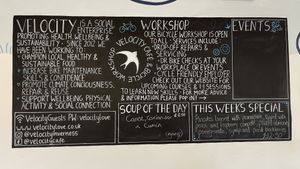 VELOCITY IS A SOCIAL ENTERPRISE
PROMOTING HEALTH, WELLBEING &
SUSTAINABILITY · SINCE 2012 WE
HAVE BEEN WORKING TO
• CHAMPION LOCAL, HEALTHY &
SUSTAINABLE FOOD
• INCREASE BIKE MAINTENANCE
SKILLS & CONFIDENCE
• PROMOTE CLIMATE CONSCIOUSNESS,
REPAIR & REUSE
• SUPPORT WELLBEING, PHYSICAL
ACTIVITY & SOCIAL CONNECTION
VelocityGuests PW: velocitylove
www.velocitylove.co.uk
@velocityinverness
@velocitycafe
VELOCITY CAFE & BICYCLE WORKSHOP
WORKSHOP
OUR BICYCLE WORKSHOP IS OPEN
TO ALL · SERVICES INCLUDE:
• DROP-OFF REPAIRS &
SERVICING
• DR BIKE CHECKS AT YOUR
WORKPLACE OR EVENTS
• CYCLE FRIENDLY EMPLOYER
CHECK OUT OUR WEBSITE FOR
UPCOMING COURSES & 1-1 SESSIONS
TO LEARN NEW SKILLS · FOR MORE ADVICE &
INFORMATION PLEASE POP IN!
SOUP OF THE DAY
Carrot, Coriander
& Cumin
(vegan)
EVENTS
THIS WEEKS SPECIAL